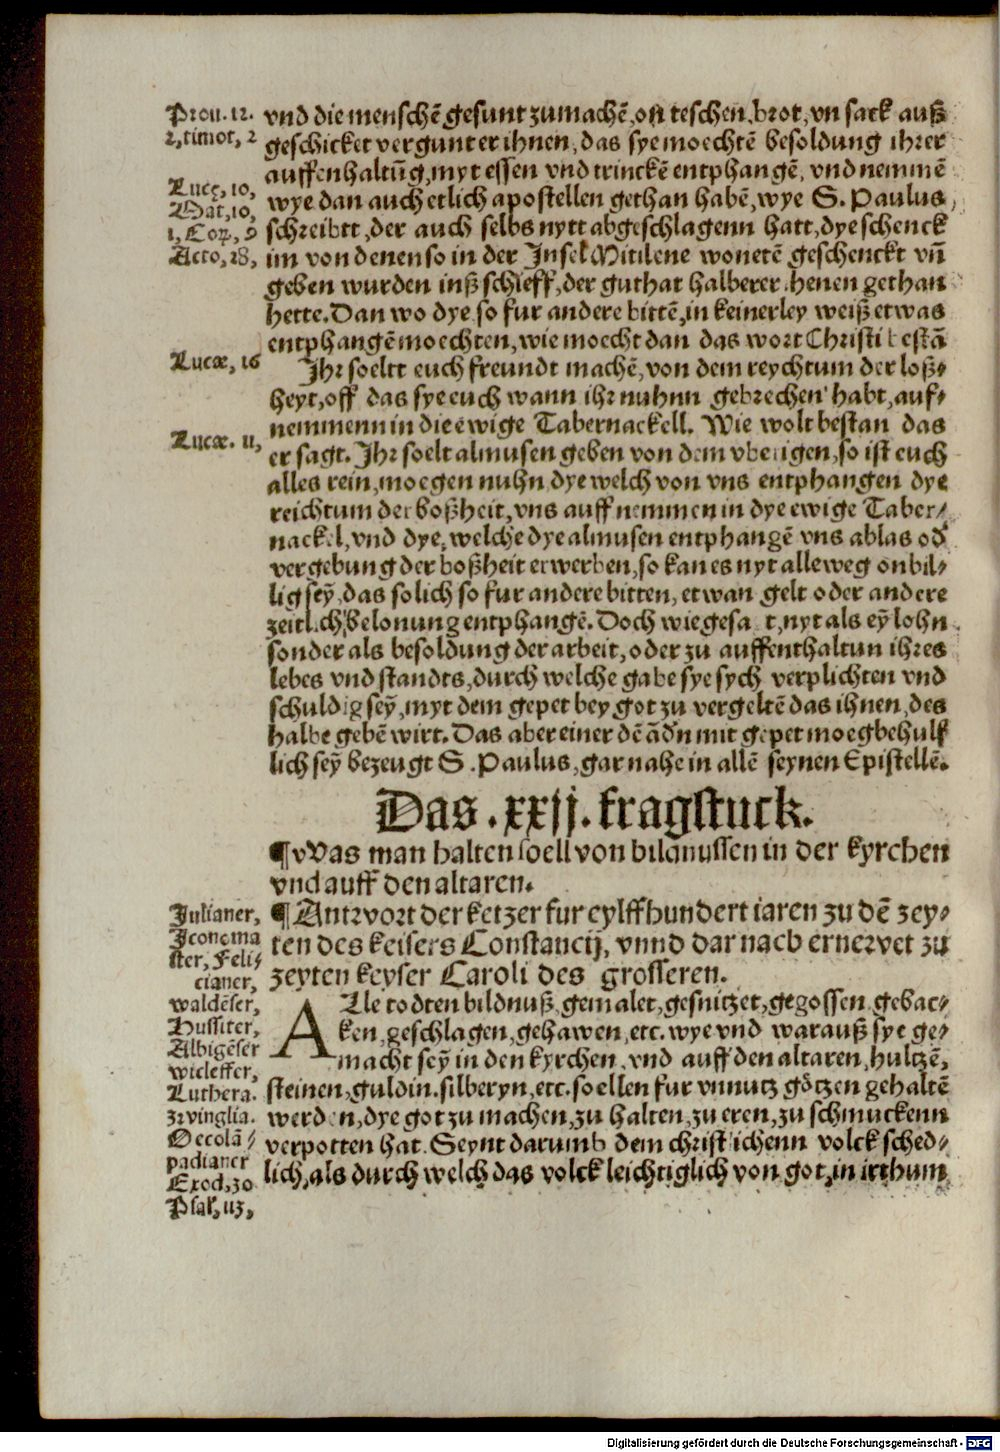 Prou. 12.
2, timot, 2
Luce, 10,
Mat, 10,
1, Cor, 9
Acto, 28,
Lucæ, 16
Lucæ. 11,
vnd die menschē gesunt zumachē, on teschen, brot, vn sack auß
geschicket vergunt er ihnen, das sye moechtē besoldung ihrer
auffenhaltūg, myt essen vnd trinckē entphangē, vnd nemmē
wye dan auch etlich apostellen gethan habē, wye S. Paulus,
schreibtt, der auch selbs nytt abgeschlagenn hatt, dye schenck
im von denen so in der Insel Mitilene wonetē geschenckt vn̄
geben wurden inß schieff, der guthat halb er er ihenen gethan
hette. Dan wo dye so fur andere bittē, in keinerley weiß etwas
entphangē moechten, wie moecht dan das wort Christi bestā
Ihr soeltt euch freundt machē, von dem reychtum der loß⸗
heyt, off das sye euch wann ihr nuhnn gebrechen habt, auf⸗
nemmenn in die ewige Tabernackell. Wie wolt bestan das
er sagt. Ihr soelt almusen geben von dem vberigen, so ist euch
alles rein, moegen nuhn dye welch von vns entphangen dye
reichtum der boßheit, vns auff nemmen in dye ewige Taber⸗
nackel, vnd dye, welche dye almusen entphangē vns ablas od̄
vergebung der boßheit erwerben, so kan es nyt alleweg onbil⸗
lig seȳ, das solich so fur andere bitten, etwan gelt oder andere
zeitlich belonung entphangē. Doch wie gesa t, nyt als eȳ lohn
sonder als besoldung der arbeit, oder zu auffenthaltun ihres
lebēs vnd standts, durch welche gabe sye sych verplichten vnd
schuldig seȳ, myt dem gepet bey got zu vergeltē das ihnen, des
halbe gebē wirt. Das aber einer dē ādn̄ mit gepet moeg behulf
lich seȳ bezeugt S. Paulus, gar nahe in allē seynen Epistellē.
Das .xxij. fragstuck.
¶ vVas man halten soell von bildnussen in der kyrchen
vnd auff den altaren.
¶ Antvvort der ketzer fur eylffhundert iaren zu dē zey⸗
ten des keisers Constancij, vnnd dar nach ernervet zu
zeyten keyser Caroli des grosseren.
ALle todten bildnuß, gemalet, gesnitzet, gegossen, gebac⸗
ken, geschlagen, gehawen, etc. wye vnd warauß sye ge⸗
macht seȳ in den kyrchen, vnd auff den altaren, hultzē,
steinen, guldin, silberyn, etc. soellen fur vnnutz götzen gehaltē
werden, dye got zu machen, zu halten, zu eren, zu schmuckenn
verpotten hat. Seynt darumb dem christlichenn volck sched⸗
lich, als durch welch das volck leichtiglich von got, in irthum
Julianer,
Iconoma
ster, Feli⸗
cianer,
waldēser,
Hussiter,
Albigēser
wicleffer,
Luthera.
zvvinglia.
Oecolā⸗
padianer
Exod, 30
Psal, 113,
Digitalisierung gefördert durch die Deutsche Forschungsgemeinschaft - DFG